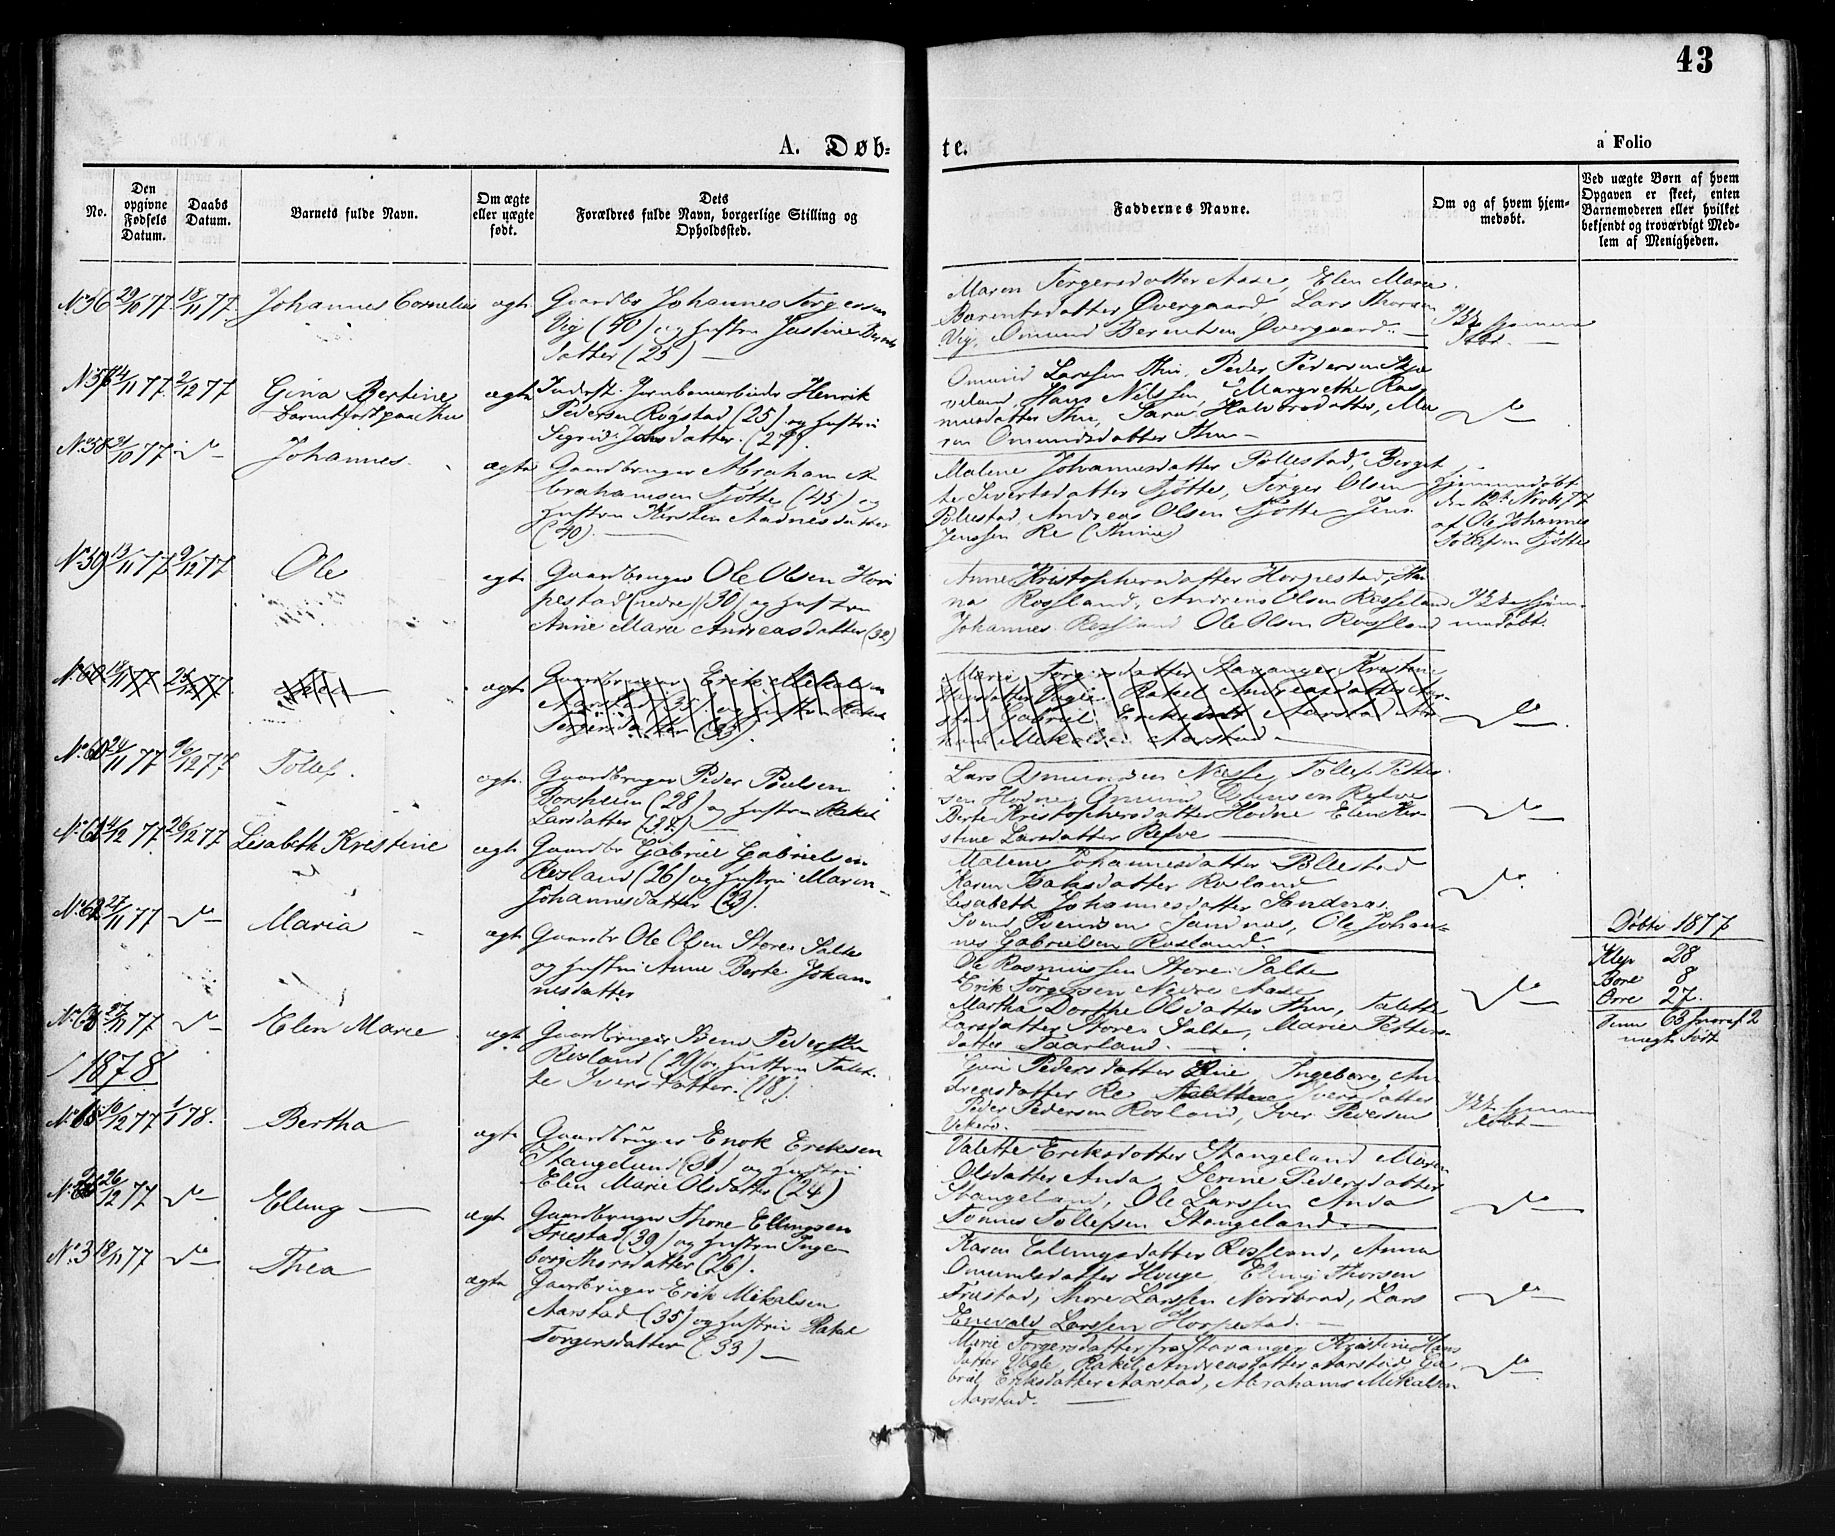 43
A. Døb=
te.
a Folio
No.
Den opgivne Fødsels Datum.
Daabs Datum.
Barnets fulde Navn.
Om ægte eller uægte født.
Dets Forældres fulde Navn, borgerlige Stilling og Opholdssted.
Faddernes Navne.
Om og af hvem hjem-
medøbt.
Ved uægte Børn af hvem
Opgaven er skeet, enten
Barnemoderen eller hvilket
bekjendt og troværdigt Med-
lem af Menigheden.
No 56 29/10 77 18/11 77 Johannes Cornelius ægte Gaardbr Johannes Torgersen
Vig (40) og Hustru Justine Berents
datter (25) —
Maren Torgersdatter Aase, Elen Marie
Barentsdatter Øvergaard, Lars Thorsen
Vig, Omund Berentsen Øvergaard. —
Ikke hjemme
døbt. —
No 57 14/11 77 2/12 77 Gina Bertine ægte Inderst. Jernbanearbeider Henrik
Barnet født paa Thu
Pedersen Rogstad (25) og Hustru
Segrid Jansdatter. (27).
Omund Larssen Thu, Peder Pedersen Skjæ
veland, Hans Nilssen, Margrethe Ras
musdatter Thu, Sara Halvorsdatter, Ma
ren Omundsdatter Thu —
do
No 58 31/10 77 do Johannes. ægte Gaardbruger Abraham A
brahamsen Tjøtte (45) og
Hustru Kirsten Aadnesdatter
(40). —
Malene Johannesdatter Pollestad, Berget
te Sivertsdatter Tjøtte, Torger Olsen
Pollestad, Andreas Olsen Tjøtte Jens
Jenssen Re (Thime)
Hjemmedøbt
den 12te Novbr 77
af Ole Johannes
Tollefsen Tjøtte
No 59 13/11 77 9/12 77 Ole ægte Gaardbruger Ole Olsen Hor
pestad (nedre) (30) og Hustru
Anne Maria Andreasdatter (32)
Anne Kristophersdatter Horpestad, Han
na Rossland, Andreas Olsen Rosseland
Johannes Rossland Ole Olsen Rossland
Ikke hjem-
medøbt.
No 60 18/11 77 25/12 77 ægte Gaardbruger Erik Mikalsen
Aarstad (35) og Hustru Rakel
Torgersdatter (33).
Marie Torgersdatter Stavanger Kristine
Hansdatter Vogle, Rakel Andreasdatter Aar-
stad Gabriel Eriksen Aarstad Ab
raham Mikalsen Aarstad —
do
No 60 24/11 77 26/12 77 Tollef. ægte Gaardbruger Peder Poulsen
Borsheim (28) og Hustru Rakel
Larsdatter (32) —
Lars Omundsen Næsse, Tollef Petter
sen Hodne, Omund Refve
Berte Kristophersdatter Hodne Elen Ker-
stine Larsdatter Refve —
do
No 61 4/12 77 26/12 77 Lisabeth Kristine ægte Gaardbr Gabriel Gabrielsen
Resland (26) og Hustru Maren
Johannesdatter (23).
Malene Johannesdatter Pollestad
Karen Isaksdatter Rosland
Lisabeth Johannesdatter Sandnæs.
Svend Svendsen Sandnes, Ole Johan-
nes Gabrielsen Rosland.
do
No 62 27/11 77 do Maria ægte Gaardbr Ole Olsen Store Salte
og Hustru Anne Berte Johan
nesdatter
Ole Rasmussen Store Salte
Erik Torgersen Nedre Aase
Martha Dorthe Olsdatter Thu, Talette
Larsdatter Store Salte, Marie Petters-
datter Taarland. —
do
No 63 27/11 77 do Elen Marie ægte Gaardbruger Svend Pedersen
Resland (29) og Hustru Talet-
te Iversdatter (18).
Guri Pedersdatter Line, Ingeborg An
dreasdatter Re Talette Iversdatter
Peder Pedersen Rosland, Iver Pedersen
Vekero. —
Ikke hjemme
døbt —
Døbte 1877
Klep 28
Bore 8
Orre 27.
Sum 63 hvoraf 2
uægte født
1878
No 1 10/12 77 1/1 78. Bertha ægte Gaardbruger Enok Eriksen
Stangeland (31) og Hustru
Elen Marie Olsdatter (24)
Valette Eriksdatter Stangeland Maren
Olsdatter Anda Serine Pedersdatter
Stangeland, Ole Larssen Anda
Tonnes Tollefsen Stangeland. —
do
No 2 26/12 77 do Elling — ægte Gaardbruger Thore Ellingsen
Friestad (39) og Hustru Inge
borg Thorsdatter (26).
Karen Ellingsdatter Rossland, Anna
Omundsdatter Houge, Elling Thorsen
Friestad, Thore Larssen Nordbraad, Lars
Enevald Larssen Horpestad. —
do
No 3 18/11 77 do Thea ægte Gaardbruger Erik Mikalsen
Aarstad (35) og Hustru Rakel
Torgersdatter (33) —
Marie Torgersdatter fra Stavanger Kristine Hans
datter Vogle, Rakel Andreasdatter Aarstad, Ga
briel Eriksdatter Aarstad, Abrahams Mikalsen
Aarstad. —
do